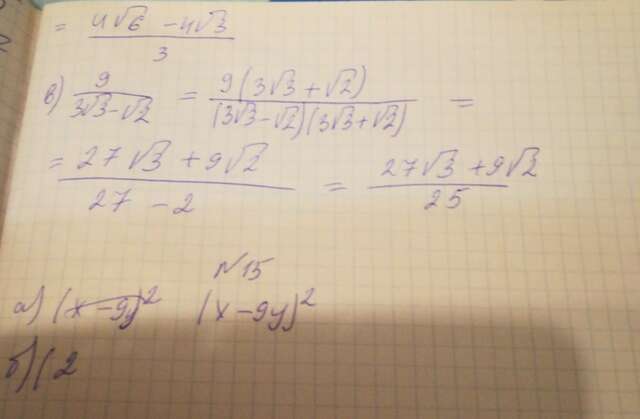 = (4√6 - 4√3)/3
в) 9/(3√3-√2) = 9(3√3+√2)/((3√3-√2)(3√3+√2)) =
= (27√3+9√2)/(27-2) = (27√3+9√2)/25
№15
а) (x-9y)² (x-9y)²
б) (2